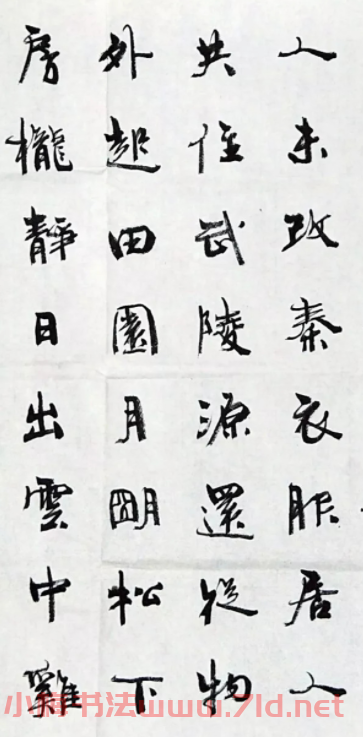 人未改秦衣服居人
共住武陵源還從物
外起田園月朙松下
房櫳靜日出雲中雞
书法www.7ld.net